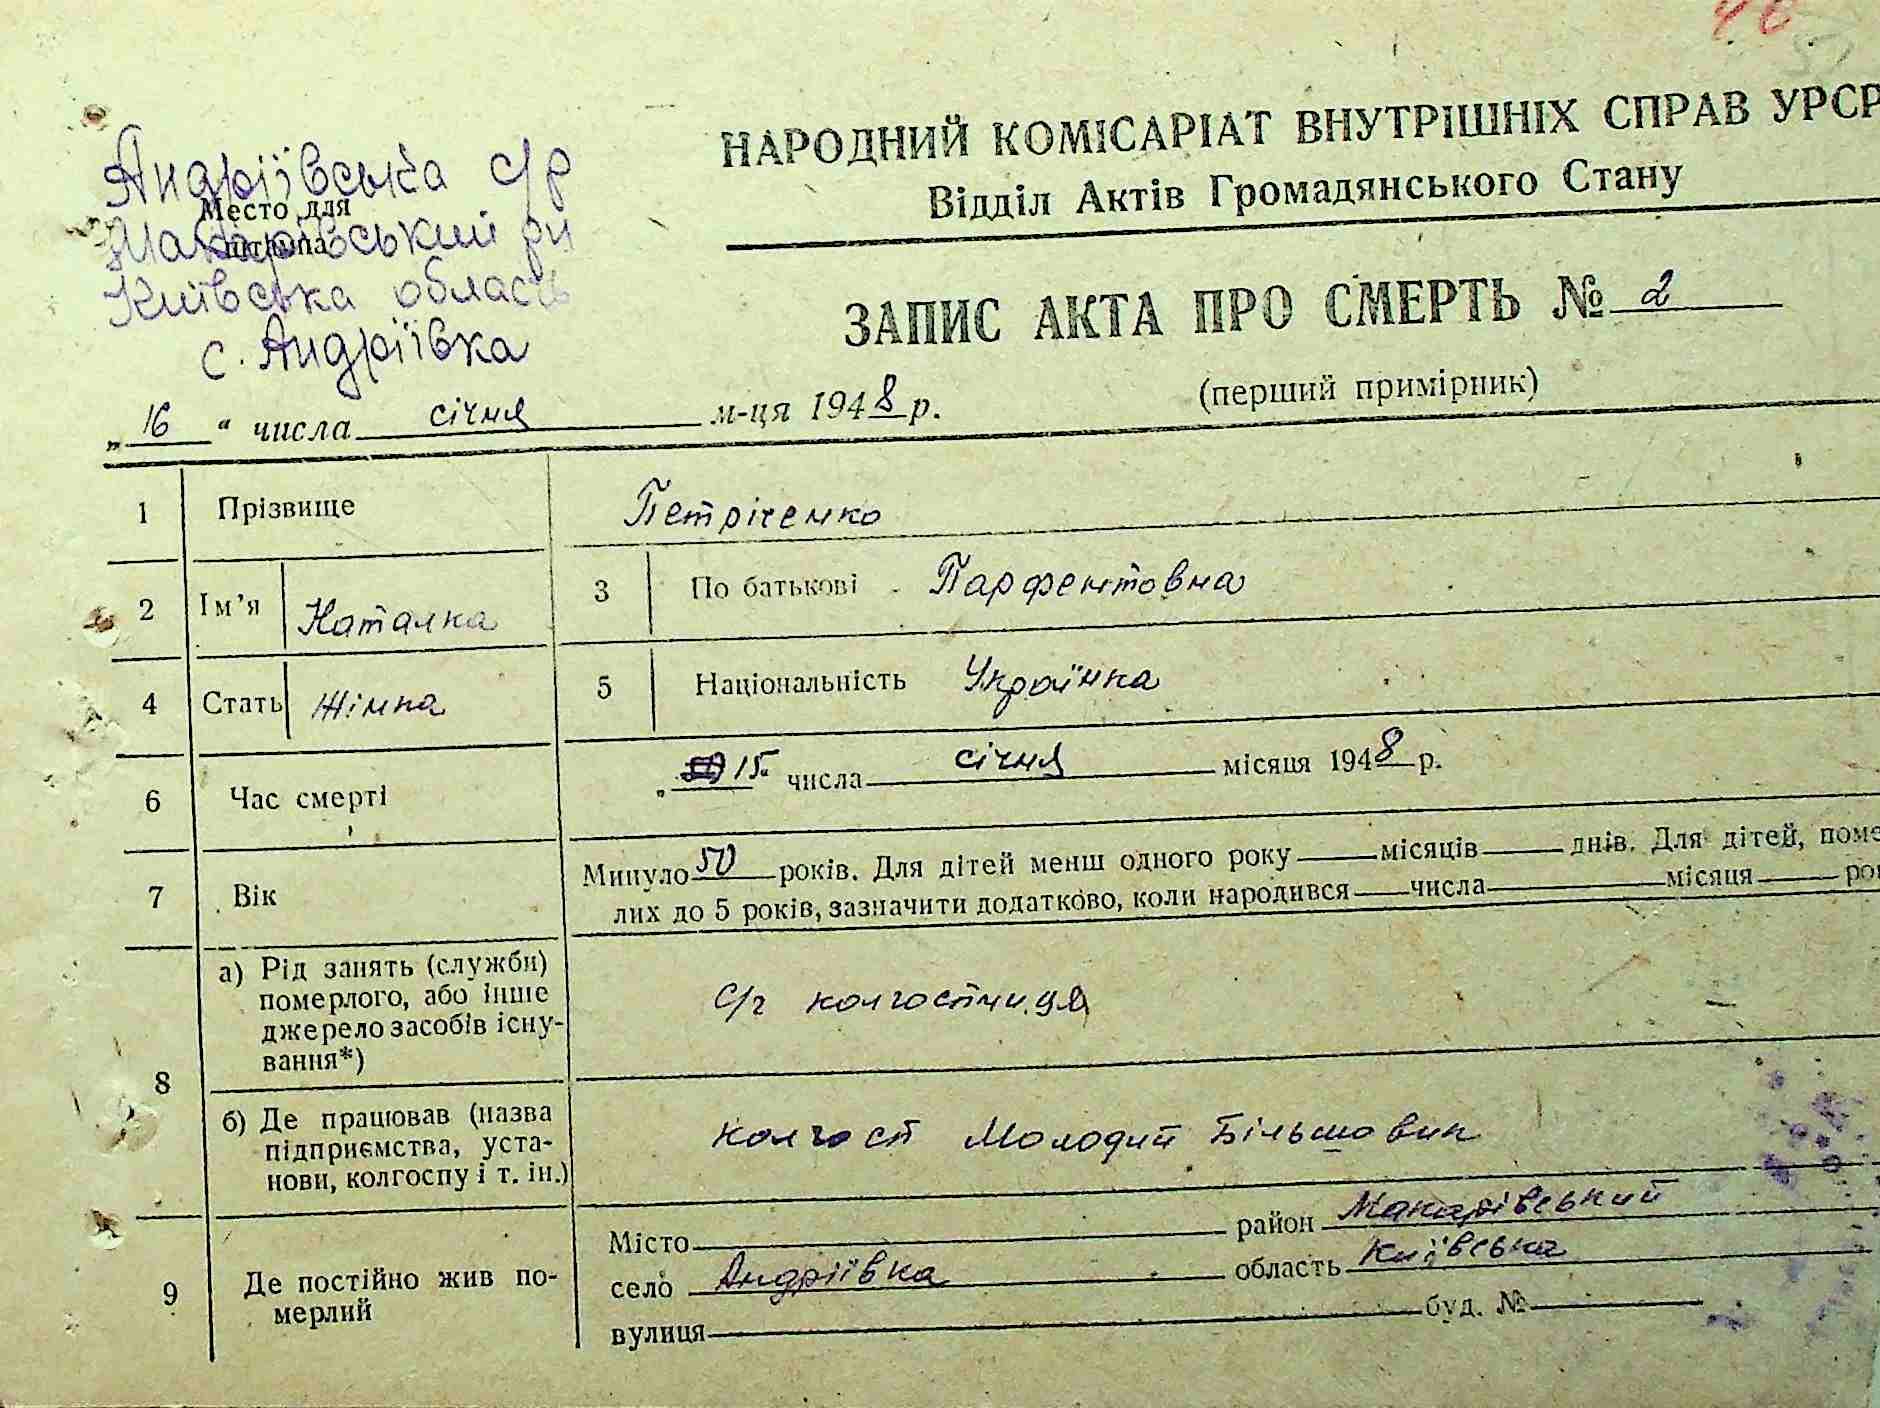 46
НАРОДНИЙ КОМІСАРІАТ ВНУТРІШНІХ СПРАВ УРСР
Відділ Актів Громадянського Стану
Андріївська с/р
Место для
штампа
Макарівський р-н
Київська область
с. Андріївка
ЗАПИС АКТА ПРО СМЕРТЬ № 2
(перший примірник)
„ 16 “ числа січня м-ця 1948 р.
1 Прізвище Петріченко
2 Ім’я Наталка 3 По батькові Парфентовна
4 Стать Жінка 5 Національність Українка
6 Час смерті „ 15 числа січня місяця 1948 р.
7 Вік Минуло 50 років. Для дітей менш одного року місяців днів. Для дітей, поме
лих до 5 років, зазначити додатково, коли народився числа місяця ро
8 а) Рід занять (служби)
померлого, або інше
джерело засобів існу-
вання*)
с/г колгоспниця
б) Де працював (назва
підприємства, уста-
нови, колгоспу і т. ін.)
колгосп Молодий Більшовик
9 Де постійно жив по-
мерлий
Місто район Макарівський
село Андріївка область Київська
вулиця буд. №